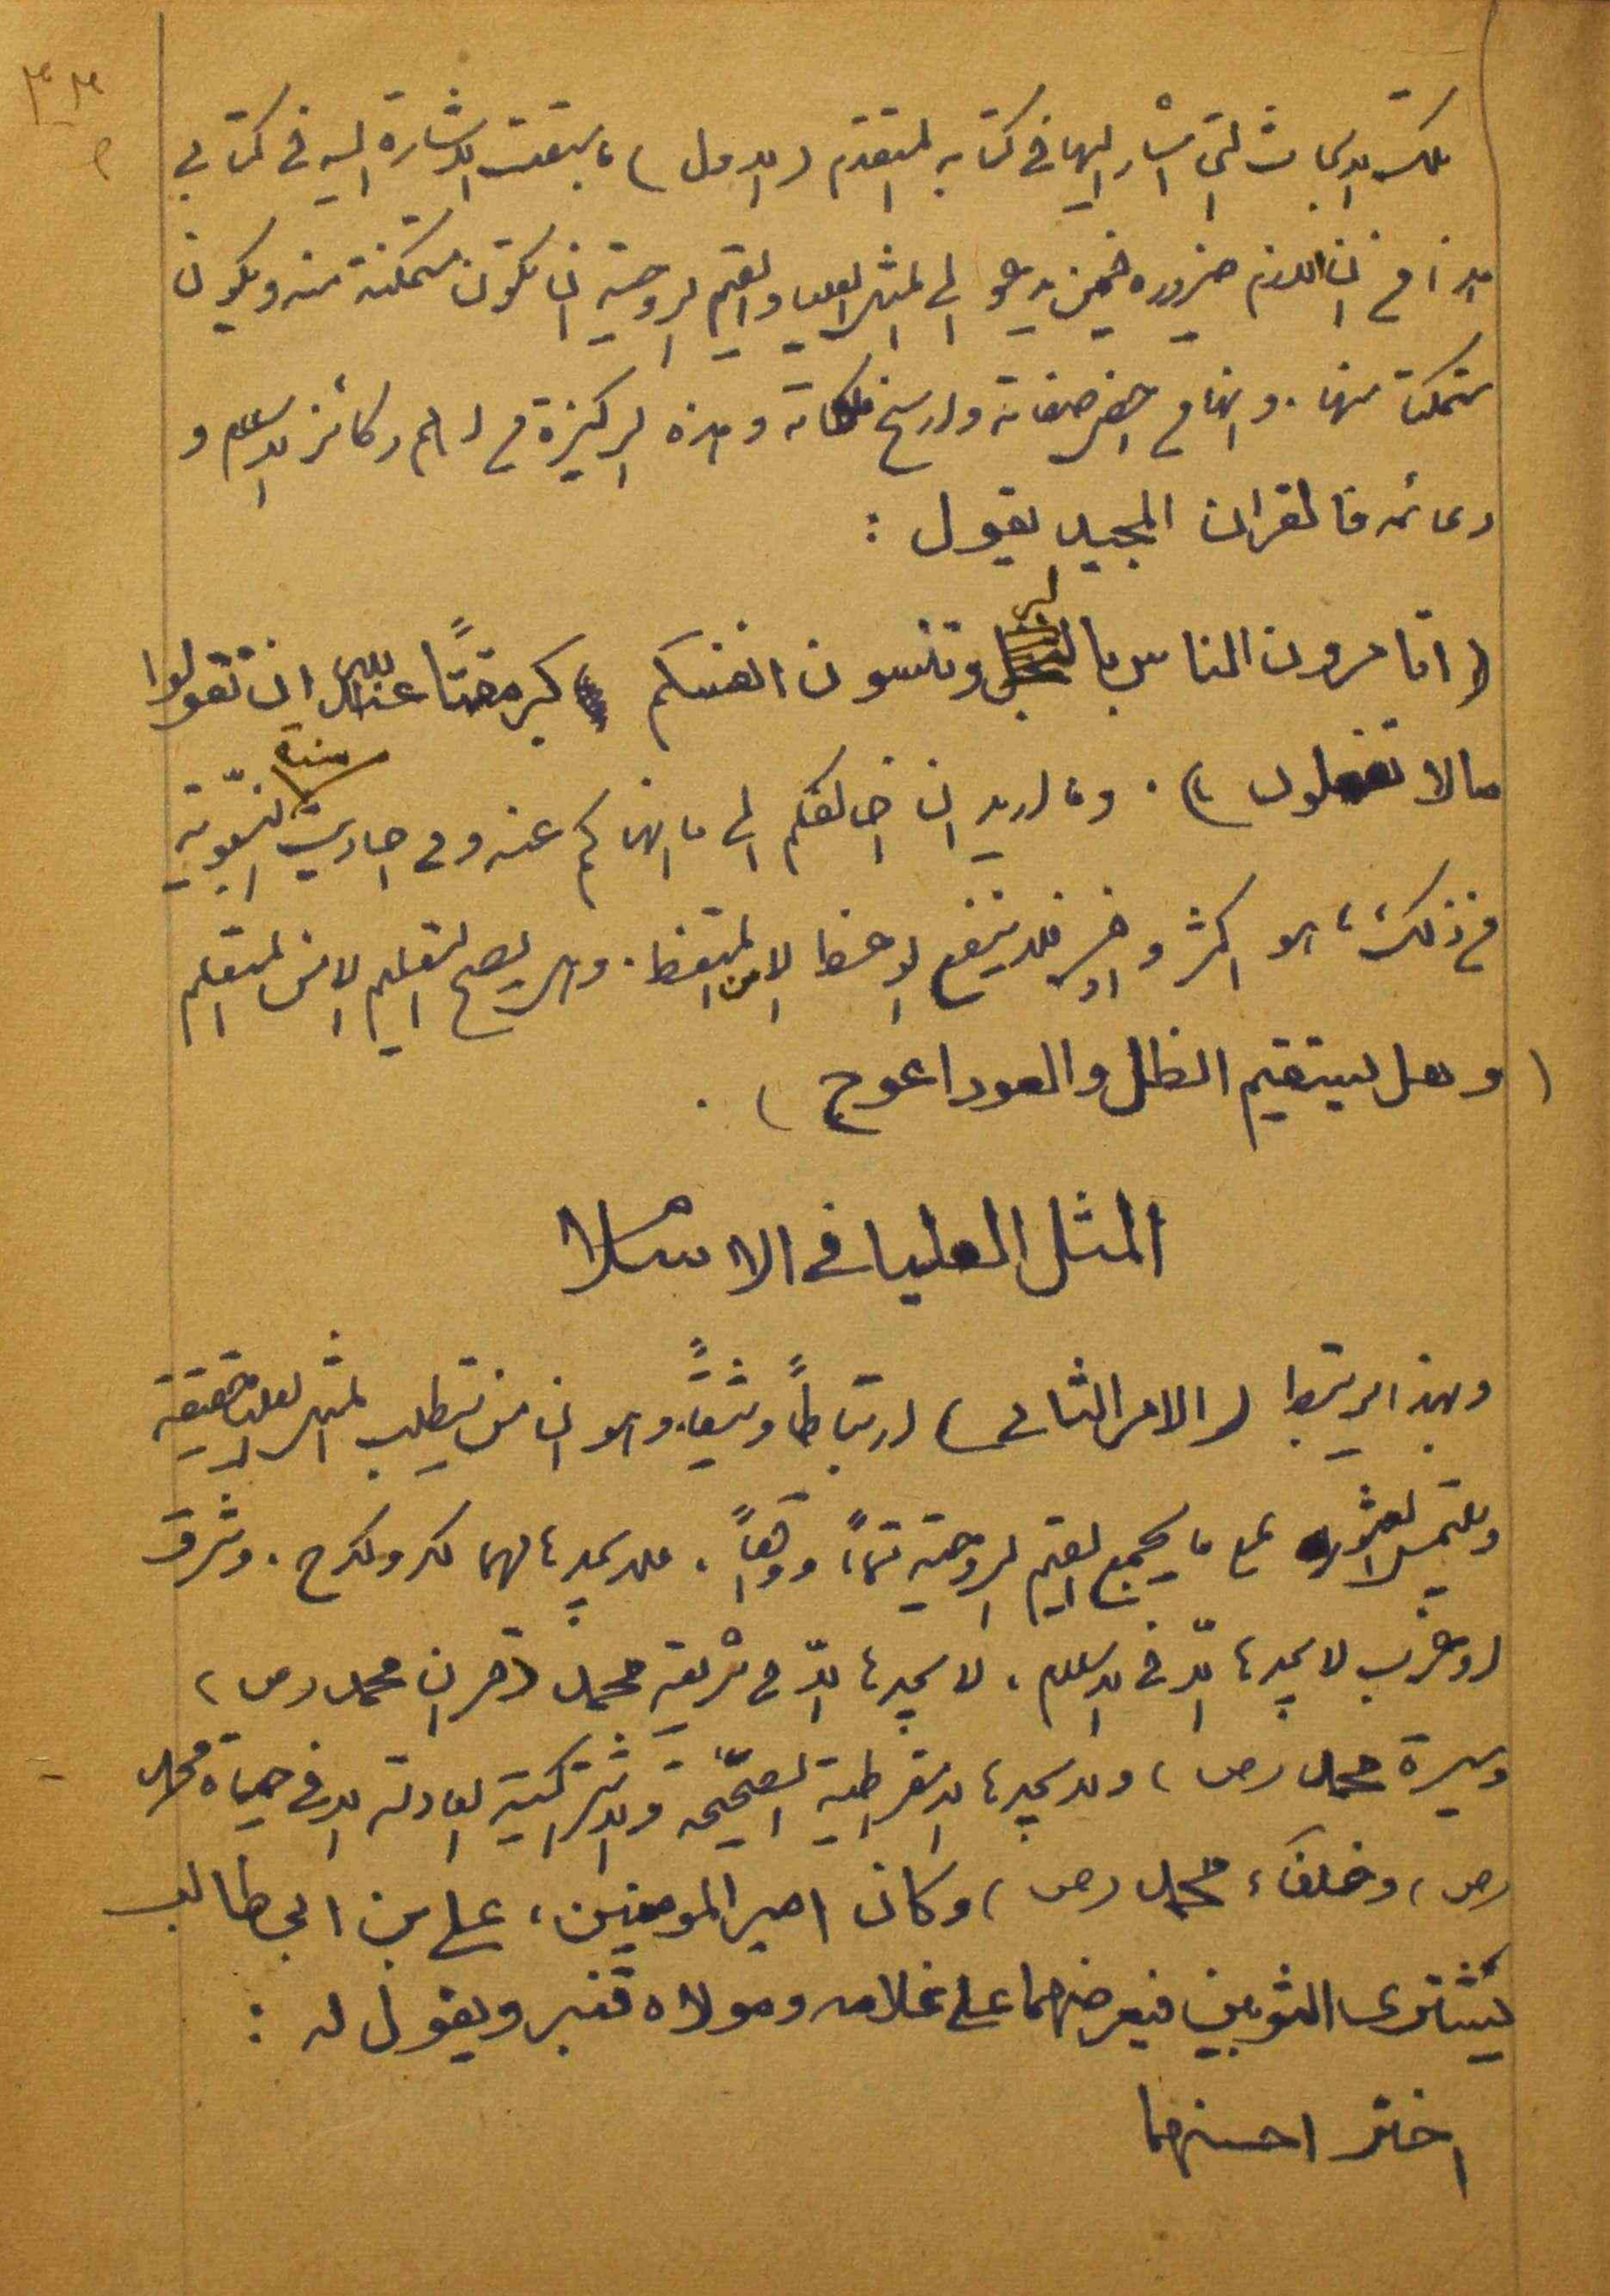 تلك الابحاث التي اشار اليها في كتابه المتقدم (الاول) ما سبقت الاشارة اليه في كتابي
هذا من ان اللازم ضروره فيمن يدعو الى المثل العليا والقيم الروحية ان تكون متمكنة منه ويكون
متمكنا منها . وانها من اخص صفاته وارسخ ملكاته وهذه الركيزة من اهم ركائز الاسلام و
دعائمه فالقران المجيد يقول :
(اتامرون الناس بالبر وتنسون انفسكم كبر مقتًا عند الله ان تقولوا
مالا تفعلون ) . وما اريد ان اخالفكم الى ما انهاكم عنه وفي احاديث السنة النبوية
من ذلك ما هو اكثر واوفر فلا ينفع الوعظ الا من المتعظ . وهل يصح التعليم الا من المتعلم
( وهل يستقيم الظل والعود اعوج ) .
المثل العليا في الاسلام
وبهذا يرتبط (الامر الثاني) ارتباطاً وثيقاً . وهو ان من يتطلب المثل العليا الحقيقة
ويلتمس العثور على ما يجمع القيم الروحية تماماً . فلا يجد ما لهما . وشرق
او غرب لا يجدها الّا في الاسلام ، لا يجدها الّا في شريعة محمد (قران محمد (ص)
وسيرة محمد (ص) ولا يجدها الديمقراطية الصحيحة والاشتراكية العادلة الا في حياة محمد
(ص) وخلفاء محمد (ص) وكان امير المومنين ، علي بن ابي طالب
يشترى الثوبين فيعرضهما على غلامه ومولاه قنبر ويقول له :
اختر احسنهما